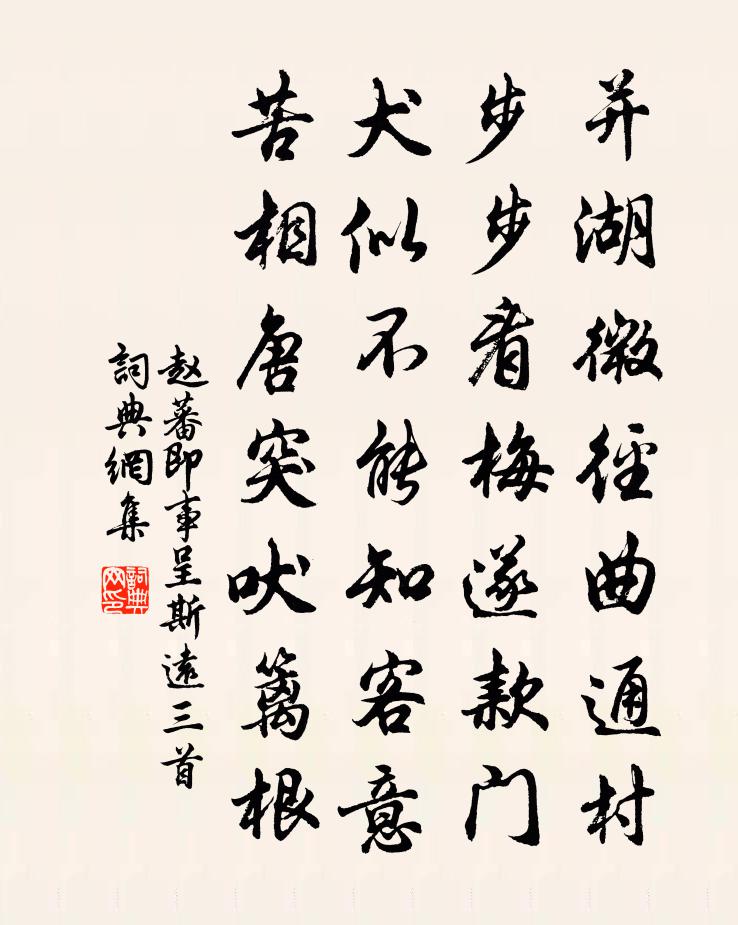 并湖微径曲通村
步步看梅遂款门
犬似不能知客意
苦相唐突吠篱根
赵蕃即事呈斯远三首
词典网集
詞典网印